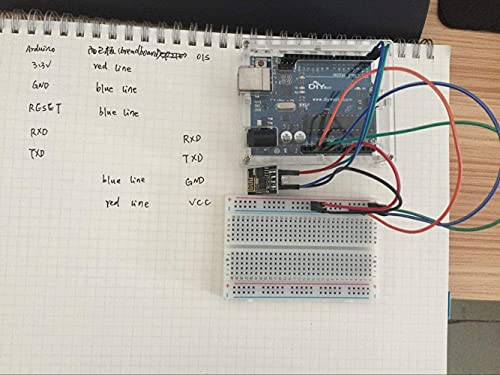 Arduino (breadboard) 01S
3.3V red line
GND blue line
RESET blue line
RXD RXD
TXD TXD
blue line GND
red line VCC
DIY
www.diymall.com